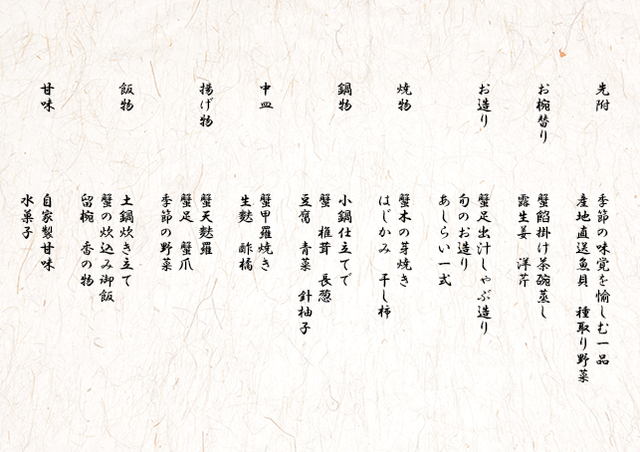 先附
季節の味覚を愉しむ一品
産地直送魚貝　種取り野菜
お椀替り
蟹餡掛け茶碗蒸し
露生姜　洋芹
お造り
蟹足出汁しゃぶ造り
旬のお造り
あしらい一式
焼物
蟹木の芽焼き
はじかみ　干し柿
鍋物
小鍋仕立てで
蟹　椎茸　長葱
豆腐　青菜　針柚子
中皿
蟹甲羅焼き
生麩　酢橘
揚げ物
蟹天麩羅
蟹足　蟹爪
季節の野菜
飯物
土鍋炊き立て
蟹の炊込み御飯
留椀　香の物
甘味
自家製甘味
水菓子